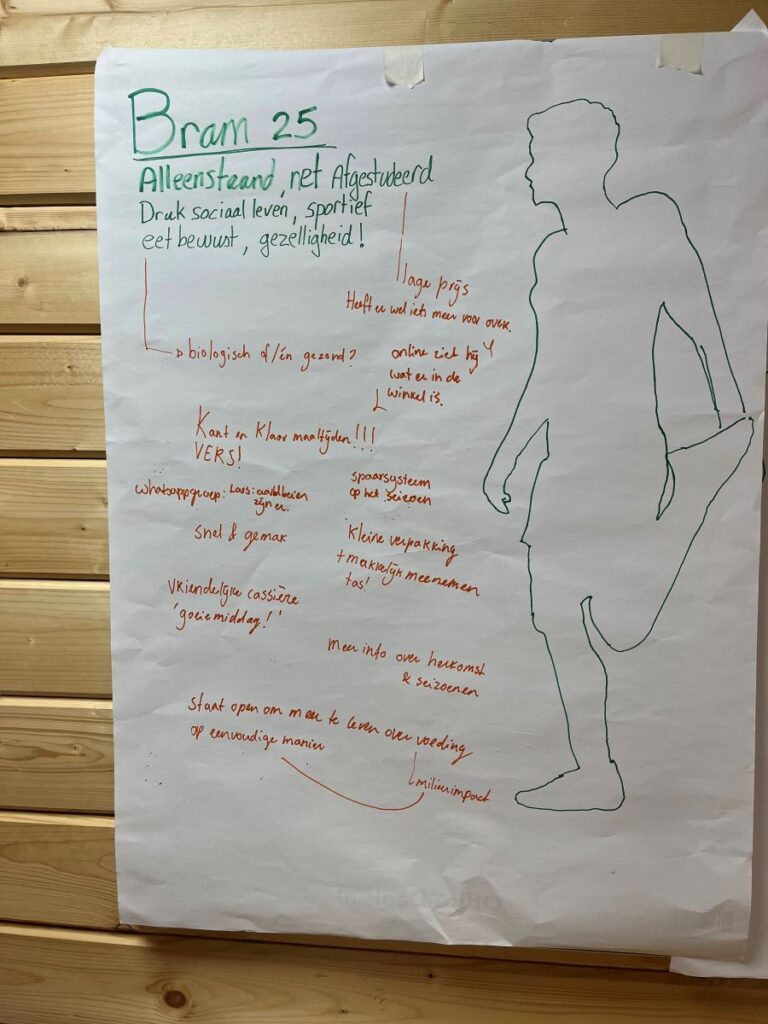 Bram 25
Alleenstaand, net Afgestudeerd
Druk sociaal leven, sportief
eet bewust, gezelligheid!
lage prijs
Heeft er wel iets meer voor over.
biologisch of/én gezond?
online ziet hij
wat er in de
winkel is.
Kant en Klaar maaltijden!!!
VERS!
whatsappgroep: Lars: aardbeien
zijn er.
spaarsysteem
op het seizoen
snel & gemak
kleine verpakking
+ makkelijk meenemen
tas!
vriendelijke cassière
'goeie middag!'
meer info over herkomst
& seizoenen
staat open om meer te leren over voeding
op eenvoudige manier
milieuimpact